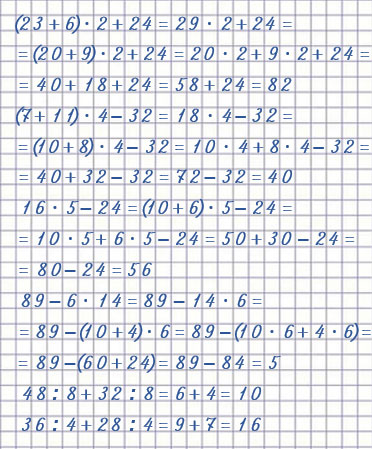 (23+6)·2+24=29·2+24=
=(20+9)·2+24=20·2+9·2+24=
=40+18+24=58+24=82
(7+11)·4-32=18·4-32=
=(10+8)·4-32=10·4+8·4-32=
=40+32-32=72-32=40
16·5-24=(10+6)·5-24=
=10·5+6·5-24=50+30-24=
=80-24=56
89-6·14=89-14·6=
=89-(10+4)·6=89-(10·6+4·6)=
=89-(60+24)=89-84=5
48:8+32:8=6+4=10
36:4+28:4=9+7=16